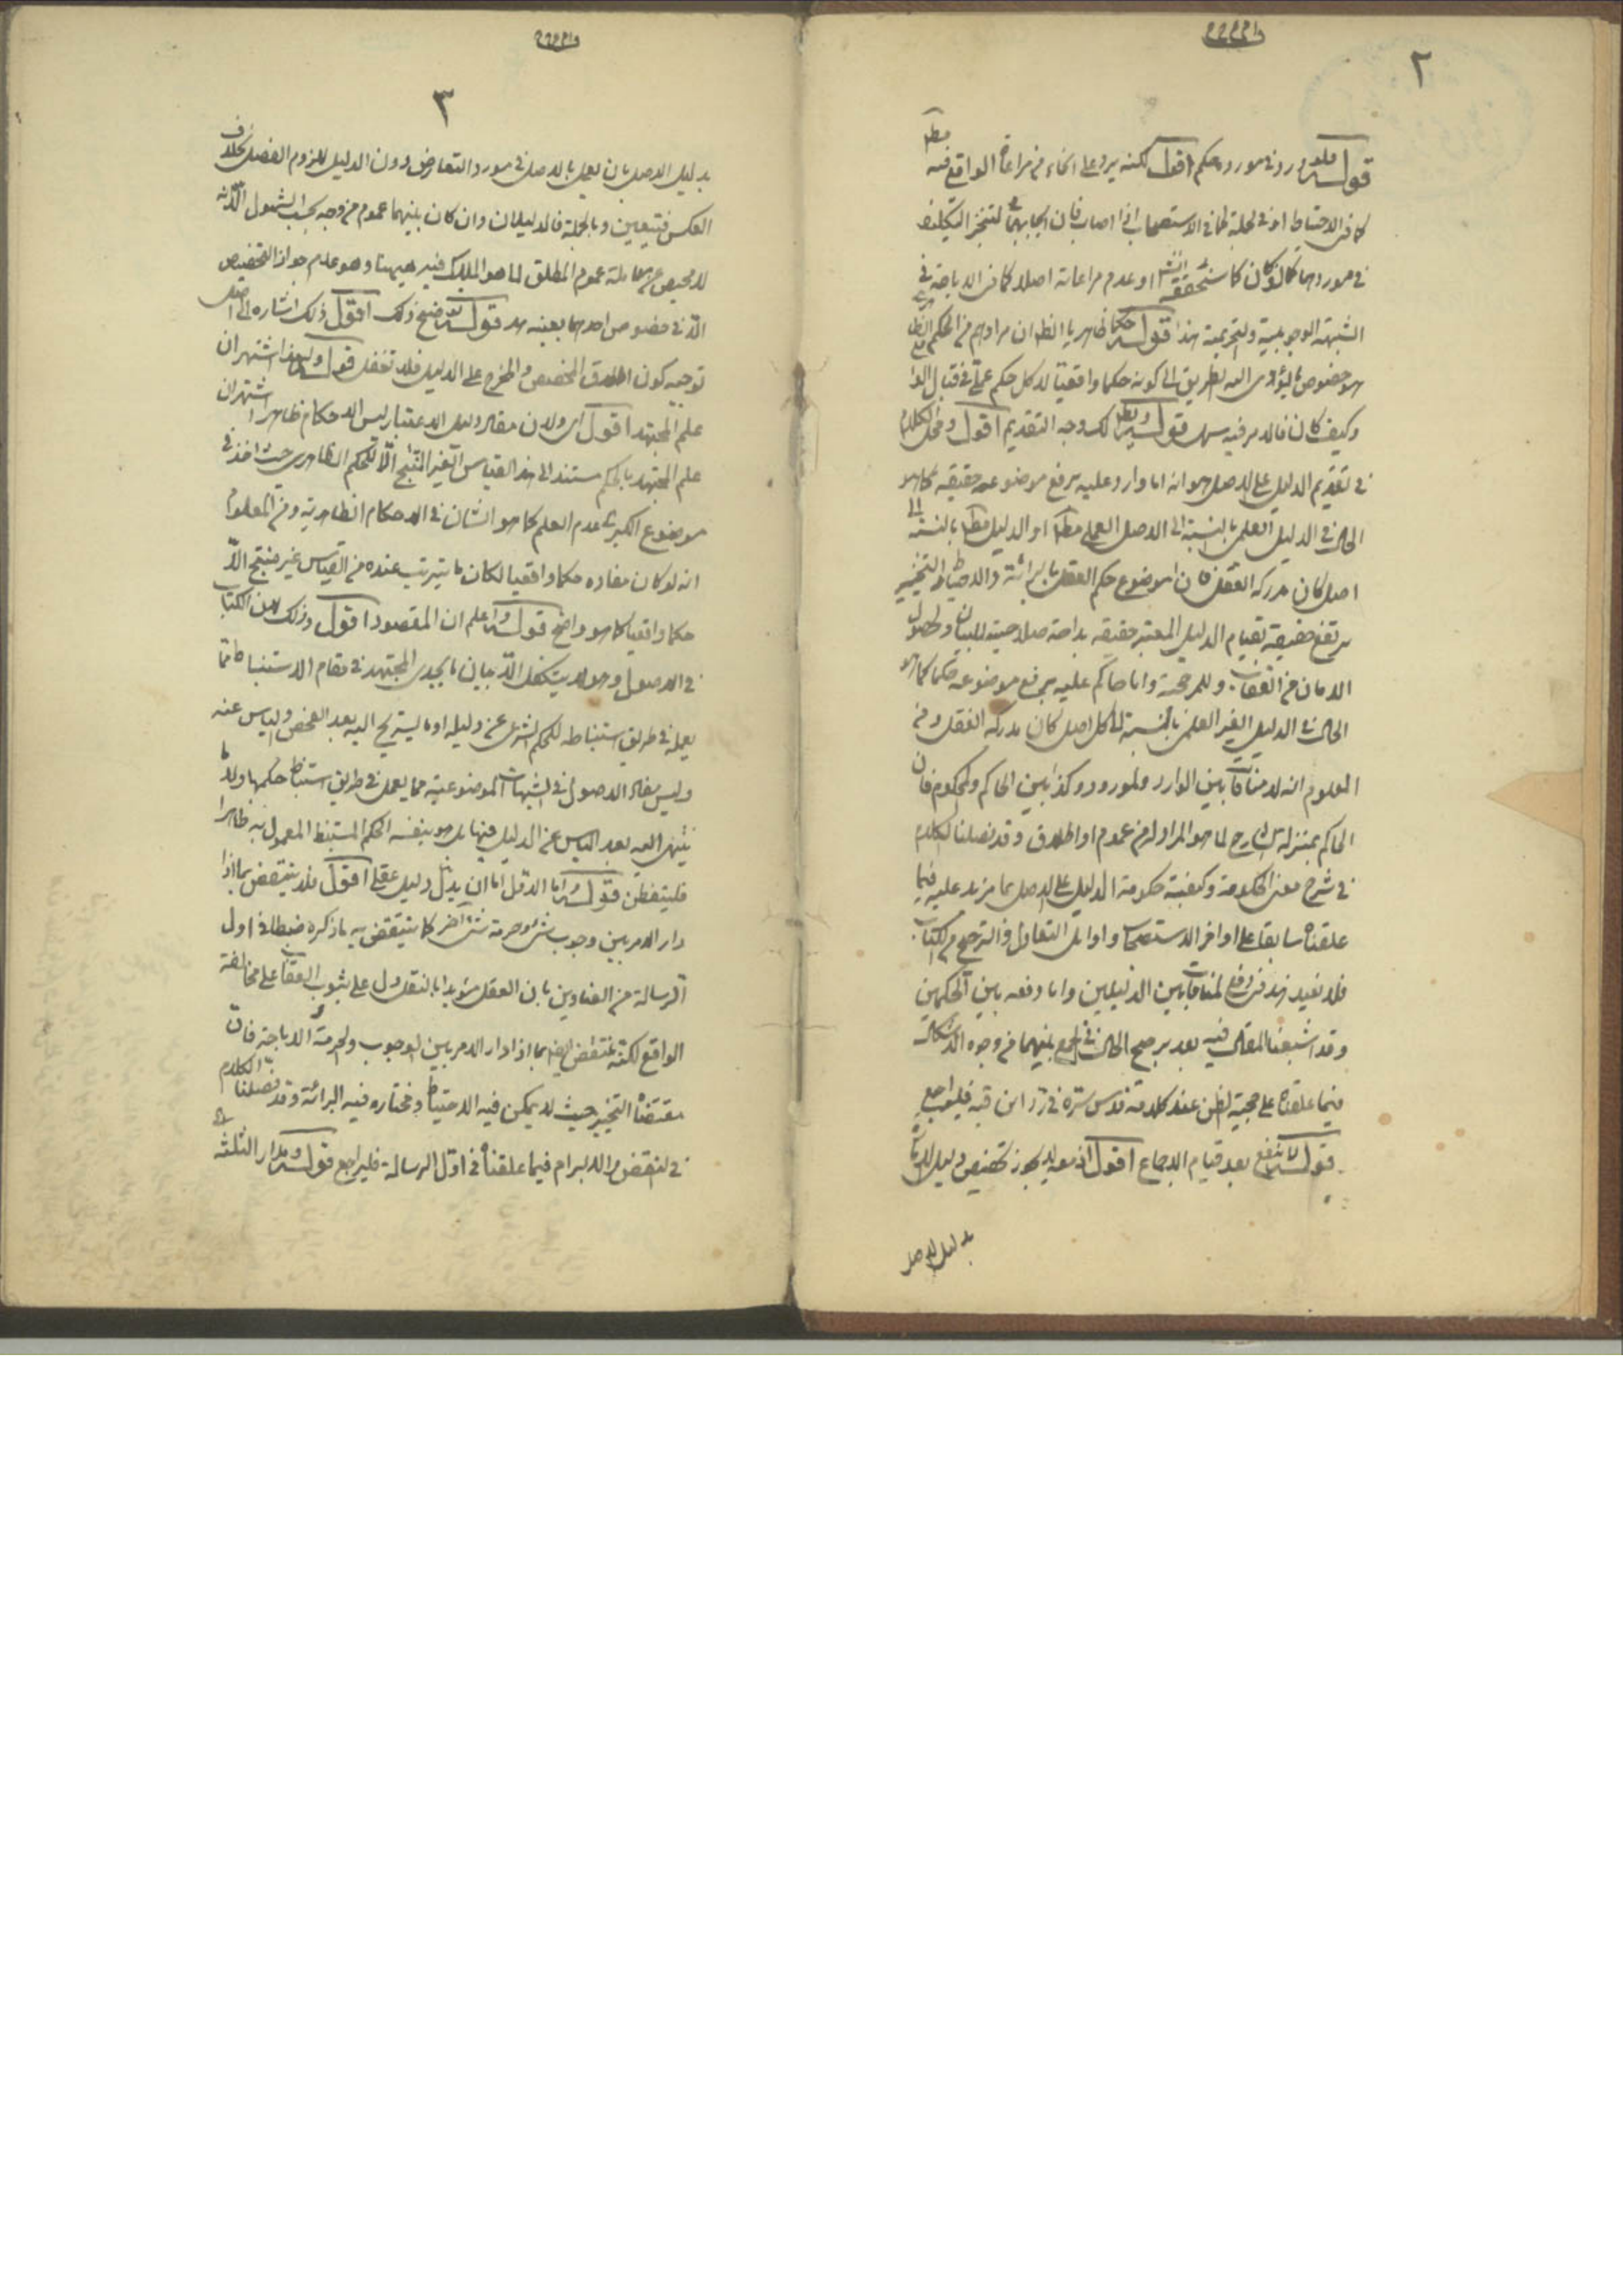 ٢
قوله فلو ورد في مورده حكم اقول لكنه يرد على انحاء من مراعاة الواقع فيه مط
كما في الاحتياط او في الجملة كما في الاستصحاب اذا اصاب فان ايجابهما لتنجز التكليف
في موردهما لو كان كما ستحققه انش او عدم مراعاته اصلا كما في الاباحة في
الشبهة الوجوبية والتحريمية هذا قوله حكما ظاهريا الظ ان مرادهم من الحكم الظ
هو خصوص ما يؤدى اليه الطريق لا كونه حكما واقعيا لا كل حكم عملى في قبال الوا
وكيف كان فالامر فيه سهل قوله ويظهر لك وجه التقديم اقول ومحل الكلام
في تقديم الدليل على الاصل هو انه اما وارد عليه يرفع موضوعه حقيقة كما هو
الحال في الدليل العلمى بالنسبة الى الاصل العملى مط او الدليل مط بالنسبة الى
اصل كان مدركه العقل فان موضوع حكم العقل بالبرائة والاحتياط والتخيير
يرتفع حقيقة بقيام الدليل المعتبر حقيقة بداهة صلاحيته للبيان ولحصول
الامان من العقاب وللمرجحية واما حاكم عليه يرفع موضوعه حكما كما هو
الحال في الدليل الغير العلمى بالنسبة الى كل اصل كان مدركه النقل ومن
المعلوم انه لا منافاة بين الوارد والمورود وكذا بين الحاكم والمحكوم فان
الحاكم بمنزلة الشارح لما هو المراد من عموم او اطلاق وقد فصلنا الكلام
في شرح معنى الحكومة وكيفية حكومة الدليل على الاصل بما مزيد عليه فيما
علقناه سابقا على اواخر الاستصحاب واوايل التعادل والترجيح من الكتاب
فلا نعيد هذا في رفع المنافاة بين الدليلين واما دفعه بين الحكمين
وقد اشبعنا المقال فيه بعد توضيح الحال في الجمع بينهما من وجوه الاشكال
فيما علقناه على حجية الظن عند كلامه قدس سره في رد ابن قبة فليراجع
قوله لا ينفع بعد قيام الاجماع اقول اذ معه لا يجوز تخصيص دليل الامارة
بدليل الاصل
٣
بدليل الاصل بان يعمل بالاصل في مورد التعارض دون الدليل للزوم الفصل بخلاف
العكس فيتعين وبالجملة فالدليلان وان كان بينهما عموم من وجه بحسب الشمول الا انه
لا محيص عن معاملة عموم المطلق لما هو الملاك فيه هيهنا وهو عدم جواز التخصيص
الا في خصوص احدهما بعينه قوله توضيح ذلك اقول ذلك اشاره الى اصل
توجيه كون اطلاق المخصص والمخرج على الدليل فلا تغفل قوله ولهذا اشتهر ان
علم المجتهد اقول اى ولان مفاد دليل الاعتبار ليس الا حكام ظاهرا اشتهر ان
علم المجتهد بالحكم مستند الى هذا القياس الغير المنتج الا للحكم الظاهرى حيث اخذ في
موضوع الكبرى عدم العلم كما هو الشان في الاحكام الظاهرية ومن المعلوم
انه لو كان مفاده حكما واقعيا لكان ما يترتب عنده من القياس غير منتج الا
حكما واقعيا كما هو واضح قوله واعلم ان المقصود اقول وذلك لان الكتاب
في الاصول وهو لا يتكفل الا بيان ما يجدى المجتهد في مقام الاستنباط مما
يعمله في طريق استنباطه للحكم الشرعى عن دليله او ما يستريح اليه بعد الفحص والياس عنه
وليس مفاد الاصول في الشبهات الموضوعية مما يعمل في طريق استنباط حكمها ولا ما
ينتهى اليه بعد الياس عن الدليل فيها بل هو بنفسه الحكم المستنبط المعمول به ظاهرا
فليتفطن قوله واما الاول اما ان يدل دليل عقلى اقول فلا ينتقض بما اذا
دار الامر بين وجوب شئ وحرمة شئ اخر كما ينتقض به ما ذكره ضبطا في اول
الرسالة من العناوين بان العقل مؤيدا بالنقل دل على ثبوت العقاب على مخالفة
الواقع لكنه ينتقض ايضا بما اذا دار الامر بين الوجوب والحرمة والاباحة فان
مقتضاه التخيير حيث لا يمكن فيه الاحتياط ومختاره فيه البرائة وقد فصلنا الكلام
في النقض والابرام فيما علقناه في اول الرسالة فليراجع قوله ومدار الثلثة